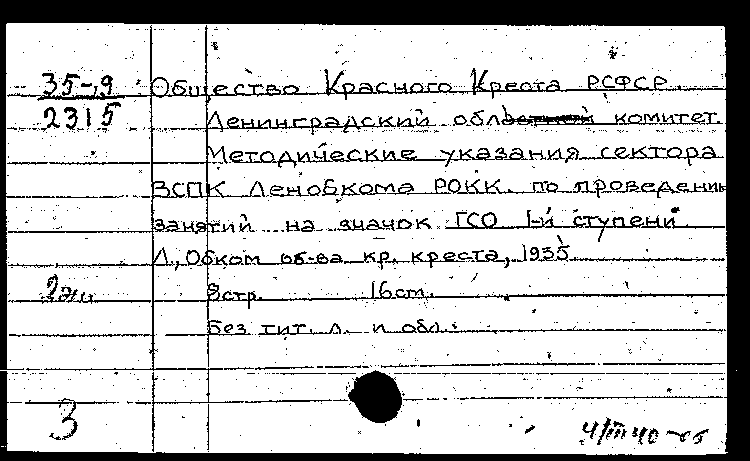 35-9
2315
Общество Красного Креста РСФСР.
Ленинградский обл комитет.
Методические указания сектора
ВСПК Ленобкома РОКК. по проведению
занятий на значок ГСО I-й ступени
Л., Обком об-ва кр. креста, 1935.
2экз.
8стр. 16см.
Без тит. л. и обл.
3
4/III 40